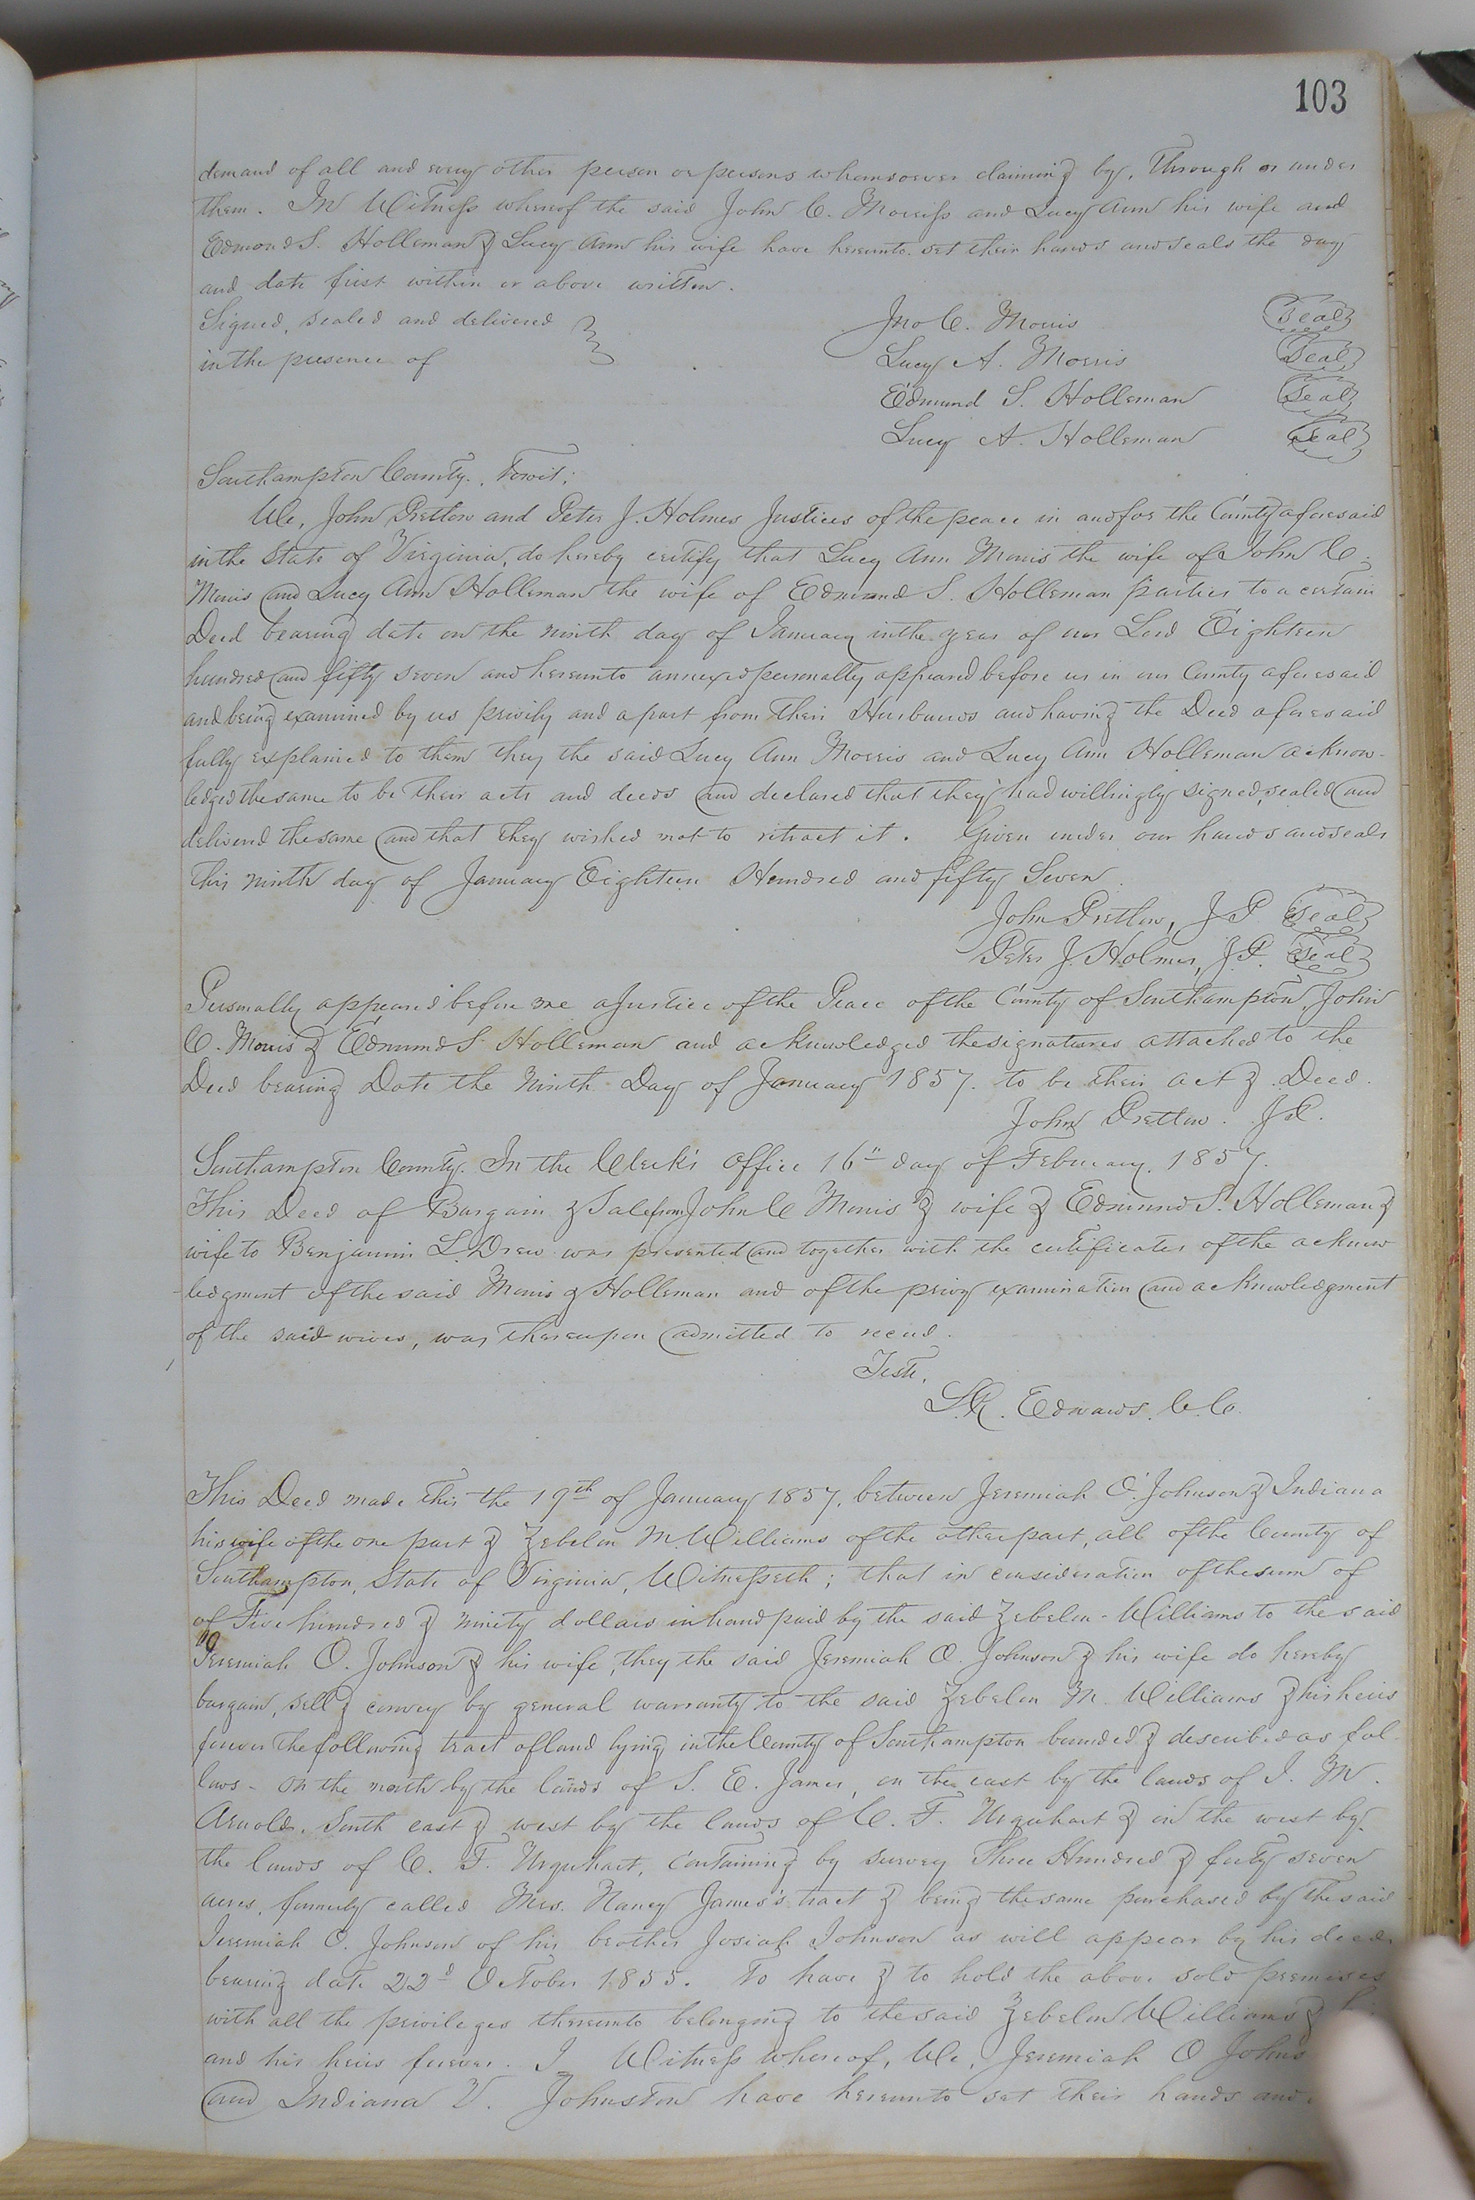 103
demand of all and every other person or persons whomsoever claiming by, through or under
them. In Witness whereof the said John C. Morriss and Lucy Ann his wife and
Edmond S. Holleman & Lucy Ann his wife have hereunto set their hands and seals the day
and date first within or above written.
Signed, sealed and delivered
in the presence of
Jno C. Morris Seal
Lucy A. Morris Seal
Edmund S. Holleman Seal
Lucy A. Holleman Seal
Southampton County, Towit;
We, John Pretlow and Peter J. Holmes Justices of the peace in and for the County aforesaid
in the State of Virginia, do hereby certify that Lucy Ann Morris the wife of John C.
Morris and Lucy Ann Holleman the wife of Edmund S. Holleman parties to a certain
Deed bearing date on the ninth day of January in the year of our Lord Eighteen
hundred and fifty seven and hereunto annexed personally appeared before us in our County aforesaid
and being examined by us privily and apart from their Husbands and having the Deed aforesaid
fully explained to them they the said Lucy Ann Morris and Lucy Ann Holleman acknow-
ledged the same to be their acts and deeds and declared that they had willingly signed, sealed and
delivered the same and that they wished not to retract it. Given under our hands and seals
this ninth day of January Eighteen Hundred and fifty Seven.
John Pretlow, J P Seal
Peter J. Holmes, J. P. Seal
Personally appeared before me a Justice of the Peace of the County of Southampton, John
C. Morris & Edmund S Holleman and acknowledged the signatures attached to the
Deed bearing Date the Ninth Day of January 1857. to be their act & Deed.
John Pretlow. J.P.
Southampton County. In the Clerk's Office 16th day of February. 1857.
This Deed of Bargain & Sale from John C Morris & wife & Edmund S. Holleman &
wife to Benjamin L Drew was presented and together with the certificates of the acknow
ledgment of the said Morris & Holleman and of the privy examination and acknowledgment
of the said wives, was thereupon admitted to record.
Teste,
L. R. Edwards. C. C.
This Deed made this the 19th of January 1857, between Jeremiah O. Johnson & Indiana
his wife of the one part & Zebelon M. Williams of the other part, all of the County of
Southampton, State of Virginia, Witnesseth; that in consideration of the sum of
of Five hundred & ninety dollars in hand paid by the said Zebelon Williams to the said
Jeremiah O. Johnson & his wife, they the said Jeremiah O. Johnson & his wife do hereby
bargain, sell & convey by general warranty to the said Zebelon M. Williams & his heirs
forever the following tract of land lying in the County of Southampton bounded & described as fol
lows - on the north by the lands of S. E. James, on the east by the lands of J. M.
Arnold, South east & west by the lands of C. F. Urquhart & on the west by
the lands of C. F. Urquhart, containing by survey Three Hundred & forty seven
acres, formerly called Mrs. Nancy James's tract & being the same purchased by the said
Jeremiah O. Johnson of his brother Josiah Johnson as will appear by his deed.
bearing date 22d October 1855. To have & to hold the above sold premises
with all the privileges thereunto belonging to the said Zebelon Williams &
and his heirs forever. I Witness whereof, We, Jeremiah O Johns
and Indiana V. Johnston have hereunto set their hands and